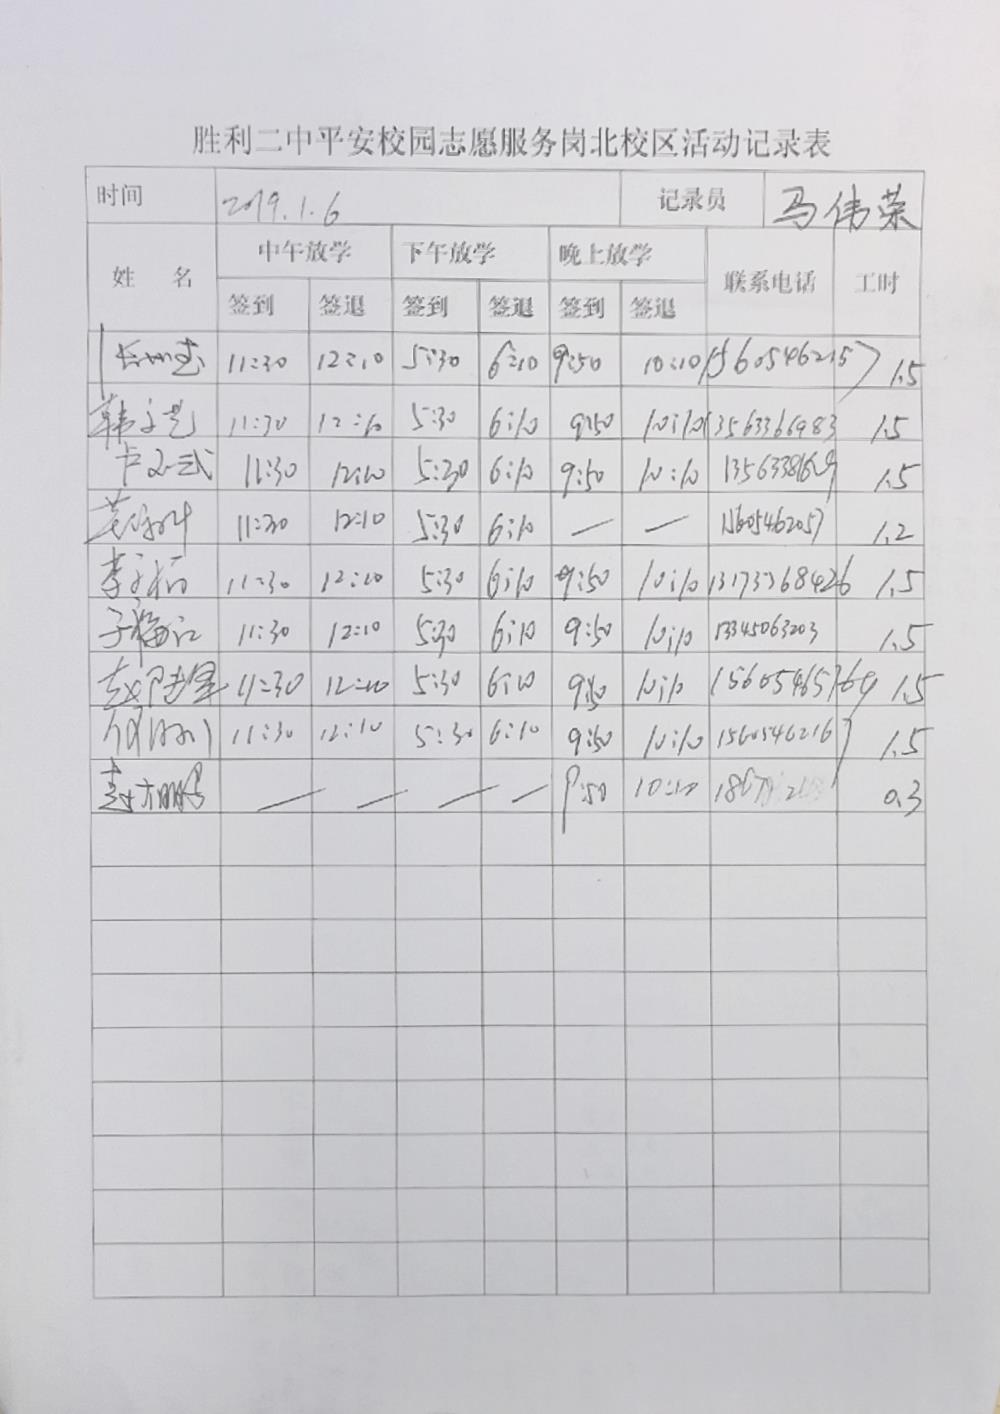 胜利二中平安校园志愿服务岗北校区活动记录表
时间 2019.1.6 记录员 马伟荣
姓 名 中午放学 下午放学 晚上放学 联系电话 工时
签到 签退 签到 签退 签到 签退
11:30 12:10 5:30 6:10 9:50 10:10 15605462157 1.5
韩文艺 11:30 12:10 5:30 6:10 9:50 10:10 13563366983 1.5
11:30 12:10 5:30 6:10 9:50 10:10 1.5
11:30 12:10 5:30 6:10 — — 15605462057 1.2
11:30 12:10 5:30 6:10 9:50 10:10 13173368426 1.5
11:30 12:10 5:30 6:10 9:50 10:10 13345063203 1.5
11:30 12:10 5:30 6:10 9:50 10:10 15605465769 1.5
11:30 12:10 5:30 6:10 9:50 10:10 1.5
— — — — 9:50 10:10 0.3